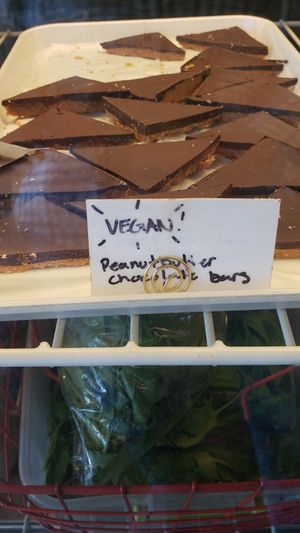 VEGAN!
Peanut butter
chocolate bars